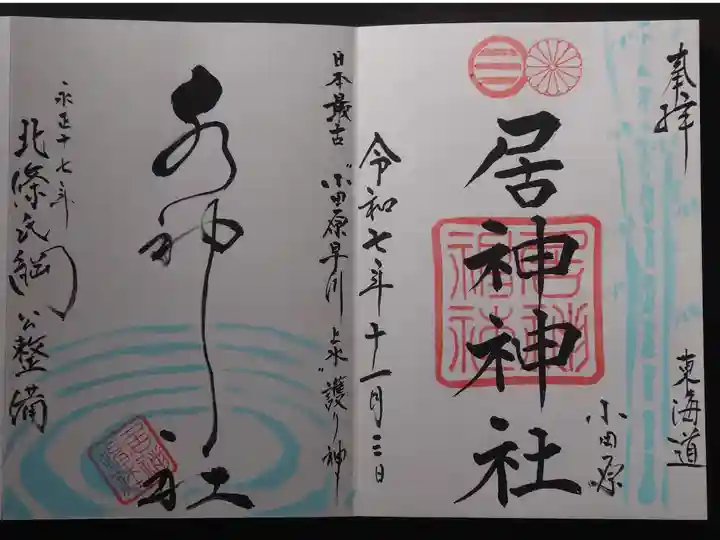 奉拝
東海道
小田原
居神神社
令和七年十一月三日
日本最古 "小田原早川上水" 護り神
水神社
永正十七年
北條氏綱公整備